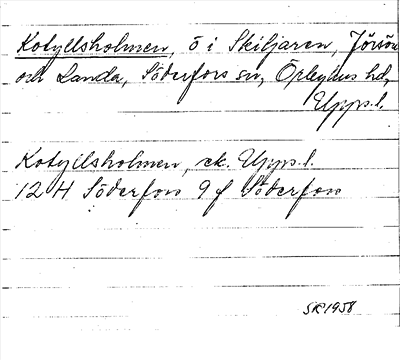 Kotyllsholmen, ö i Skiljaren, Jörsön
och Landa, Söderfors sn, Örbyhus hd,
Upps.l.
Kotyllsholmen, ek. Upps.l.
12 H Söderfors 9 f Söderfors
SR 1958